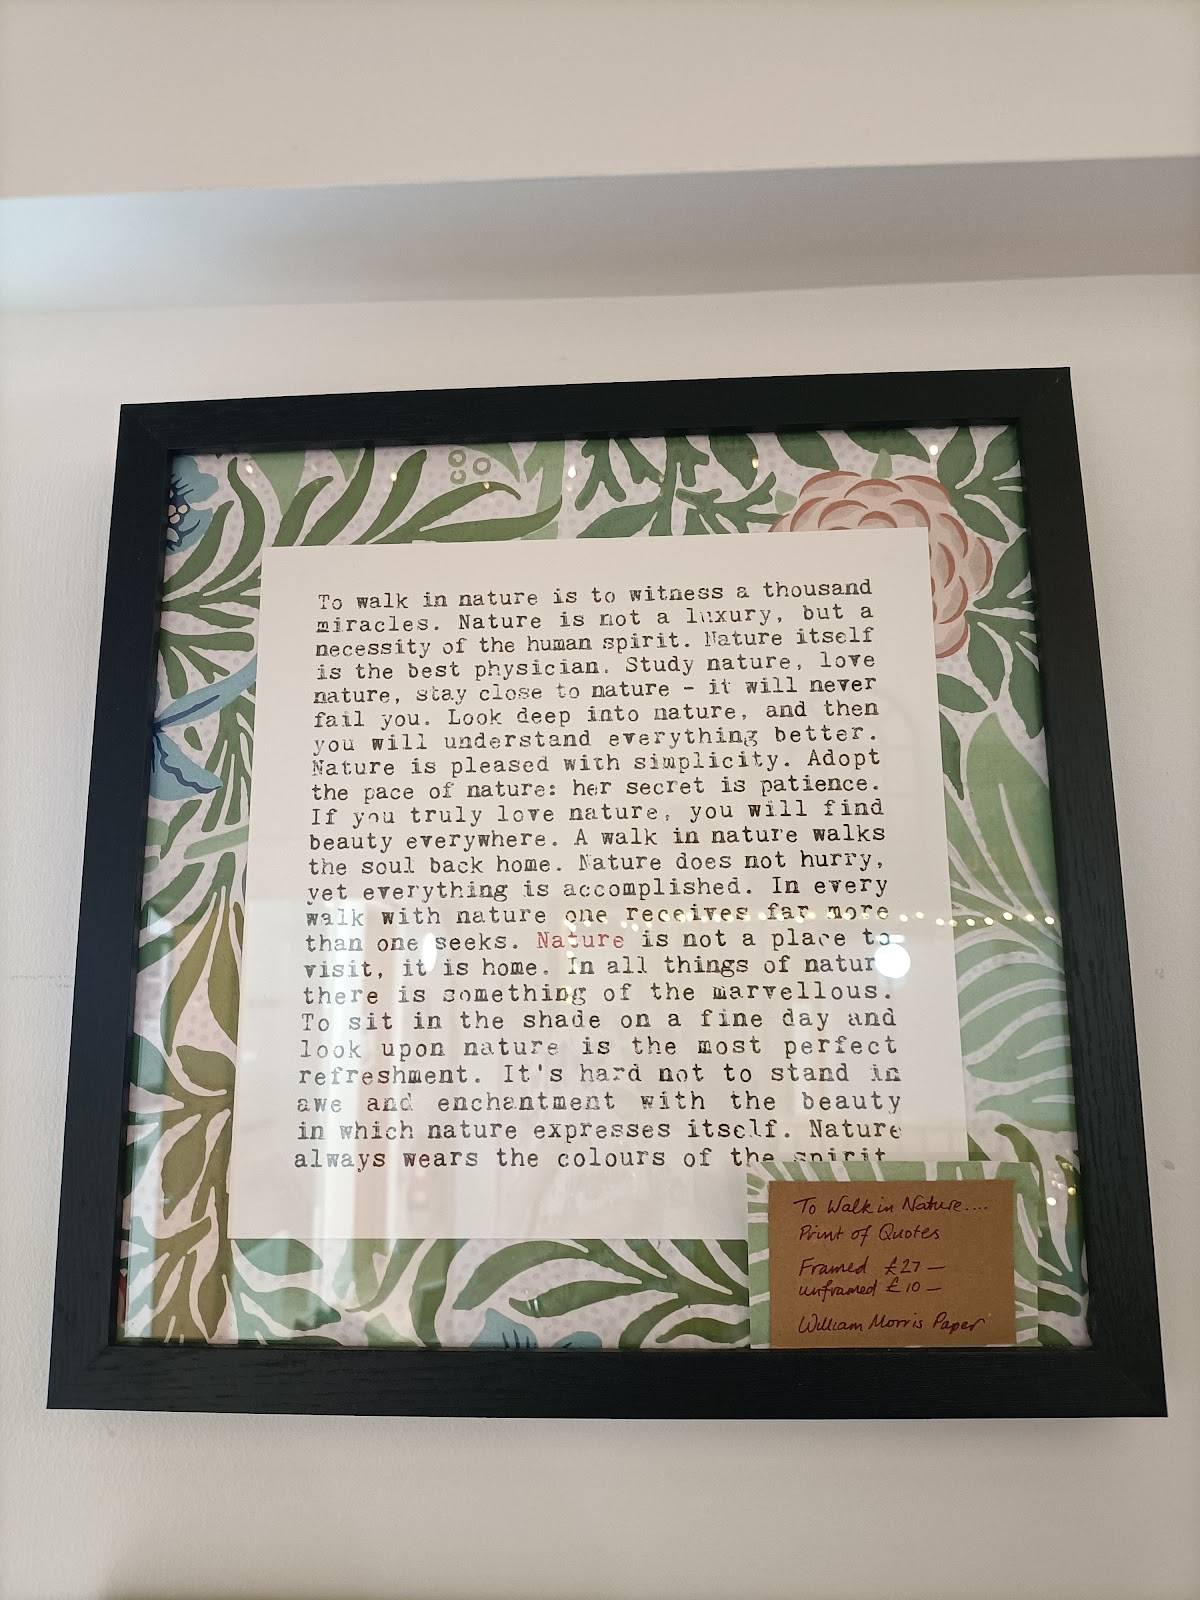 To walk in nature is to witness a thousand
miracles. Nature is not a luxury, but a
necessity of the human spirit. Nature itself
is the best physician. Study nature, love
nature, stay close to nature - it will never
fail you. Look deep into nature, and then
you will understand everything better.
Nature is pleased with simplicity. Adopt
the pace of nature: her secret is patience.
If you truly love nature, you will find
beauty everywhere. A walk in nature walks
the soul back home. Nature does not hurry,
yet everything is accomplished. In every
walk with nature one receives far more
than one seeks. Nature is not a place to
visit, it is home. In all things of nature
there is something of the marvellous.
To sit in the shade on a fine day and
look upon nature is the most perfect
refreshment. It's hard not to stand in
awe and enchantment with the beauty
in which nature expresses itself. Nature
always wears the colours of the spirit
To Walk in Nature....
Print of Quotes
Framed £27 —
unframed £10 —
William Morris Paper